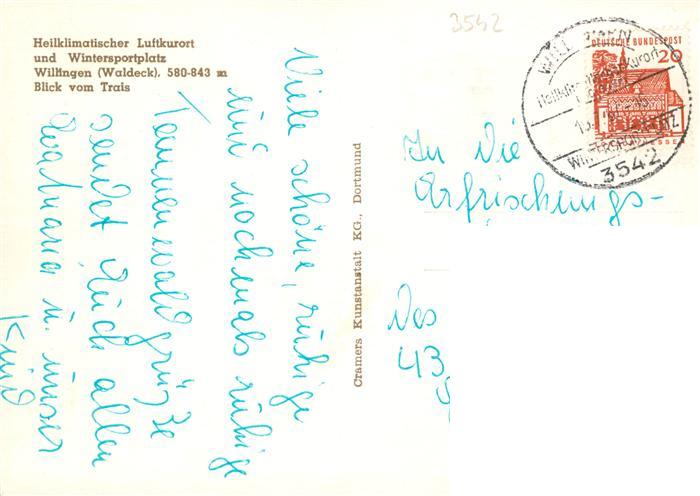 Heilklimatischer Luftkurort
und Wintersportplatz
Willingen (Waldeck), 580-843 m
Blick vom Trais
3542
DEUTSCHE BUNDESPOST
20
Heilklimatischer Kurort
3542
Cramers Kunstanstalt KG., Dortmund
Viele schöne, ruhige
und nochmals ruhige
Tannenwald grüße
sendet Euch allen
u. unser
Kind
An die
Erfrischungs-
Des
43